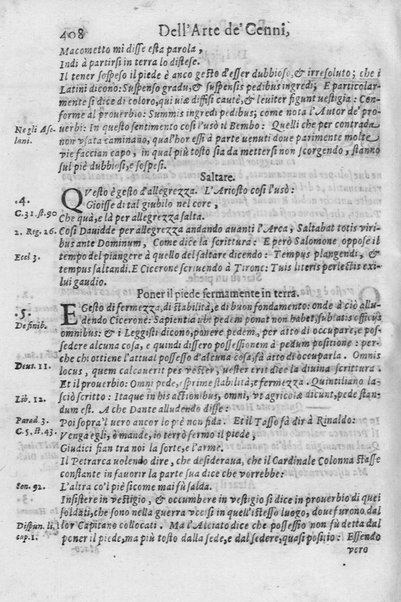 408 Dell'Arte de' Cenni,
Macometto mi disse esta parola,
Indi à partirsi in terra lo distese.
Il tener sospeso il piede è anco gesto d'esser dubbioso, & irresoluto; che i
Latini dicono: Suspenso gradu, & suspensis pedibus ingredi; E particolar-
mente si dice di coloro, qui via diffisi cautè, & leuiter figunt vestigia: Con-
forme al prouerbio: Summis ingredi pedibus; come nota l'Autor de' pro-
Negli Aso-
lani.
uerbi: In questo sentimento così l'vsò il Bembo: Quelli che per contrada
non vsata caminano, qual'hor essi à parte uenuti doue parimente molte
vie faccian capo, in qual più tosto sia da mettersi non scorgendo, stanno
sul piè dubbiosi, e sospesi.
Saltare.
.4.
QVesto è gesto d'allegrezza. L'Ariosto così l'vsò:
C. 31. st. 90
Gioisse di tal giubilo nel core,
Che quà, e là per allegrezza salta.
2. Reg. 26.
Così Dauidde per allegrezza andando auanti l'Arca, Saltabat totis viri-
bus ante Dominum, Come dice la scrittura: E però Salomone oppose il
Eccl 3.
tempo del piangere à quello del saltare dicendo: Tempus plangendi, &
tempus saltandi. E Cicerone scriuendo à Tirone: Tuis literis perlectis exi-
lui gaudio.
Poner il piede fermamente in terra.
.5.
E Gesto di fermezza, di stabilità, e di buon fondamento: onde à ciò allu-
De finib.
dendo Cicerone: Sapientia vbi pedem ponat non habet, sublatis officijs
omnibus: & i Leggisti dicono, ponere pedem, per atto di occupare, e pos-
sedere alcuna cosa, e quindi dissero possessionem à pedum positione: per-
che chi ottiene l'attual possesso d'alcuna cosa, fà atto di occuparla. Omnis
Deut. 11.
locus, quem calcauerit pes vester, vester erit dice la diuina scrittura.
Et il prouerbio: Omni pede, esprime stabilità, e fermezza. Quintiliano la-
Lib. 12.
sciò scritto: Itaque in his actionibus, omni, vt agricolæ dicunt, pede stan-
dum est. A che Dante alludendo disse:
Parad. 3.
Poi sopra'l uero ancor lo piè non fida. Et il Tasso fà dir à Rinaldo:
C. 5. st. 43.
Venga egli, ò mande, io terrò fermo il piede,
Giudici fian tra noi la sorte, e l'arme.
Il Petrarca volendo dire, che desideraua, che il Cardinale Colonna stasse
constante in fauorir la parte sua dice che vorrebbe:
Son. 92.
L'altra col piè si come mai fù salda.
Insistere in vestigio, & occumbere in vestigio si dice in prouerbio di quei
soldati, che sono nella guerra vccisi in quell'istesso luogo, doue furono dal
Dispun. li.
cap. 1.
lor Capitano collocati. Ma l'Alciato dice che possessio non fù detta dal
poner il piede, ma più tosto dalla sede, e dal sedere, quasi positio: Essendo
vero